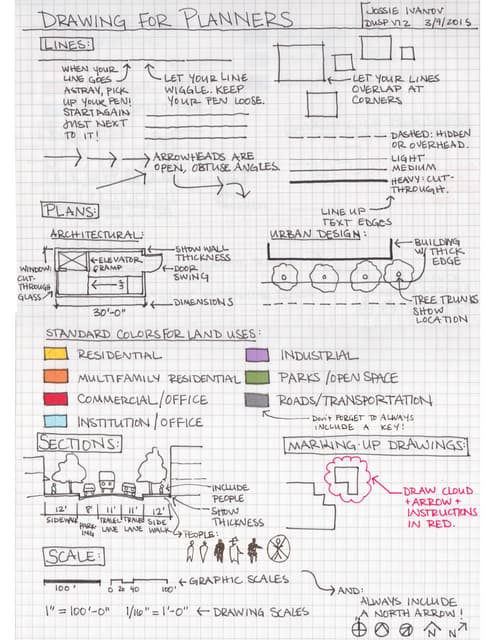 DRAWING FOR PLANNERS
JOSSIE IVANOV
DUSP VIZ 3/9/2015
LINES:
WHEN YOUR
LINE GOES
ASTRAY, PICK
UP YOUR PEN!
START AGAIN
JUST NEXT
TO IT!
LET YOUR LINE
WIGGLE. KEEP
YOUR PEN LOOSE.
LET YOUR LINES
OVERLAP AT
CORNERS
ARROWHEADS ARE
OPEN, OBTUSE ANGLES.
DASHED: HIDDEN
OR OVERHEAD.
LIGHT
MEDIUM
HEAVY: CUT-
THROUGH.
LINE UP
TEXT EDGES
PLANS:
ARCHITECTURAL:
WINDOW:
CUT-
THROUGH
GLASS
ELEVATOR
RAMP
SHOW WALL
THICKNESS
DOOR
SWING
DIMENSIONS
30'-0"
URBAN DESIGN:
BUILDING
W/ THICK
EDGE
TREE TRUNKS
SHOW
LOCATION
STANDARD COLORS FOR LAND USES:
RESIDENTIAL
MULTIFAMILY RESIDENTIAL
COMMERCIAL/OFFICE
INSTITUTION/OFFICE
INDUSTRIAL
PARKS/OPEN SPACE
ROADS/TRANSPORTATION
DON'T FORGET TO ALWAYS
INCLUDE A KEY!
SECTIONS:
INCLUDE
PEOPLE
SHOW
THICKNESS
12' 8' 11' 11' 12'
SIDEWALK
PARK-
ING
TRAVEL
LANE
TRAVEL
LANE
SIDE
WALK
PEOPLE:
MARKING-UP DRAWINGS:
DRAW CLOUD
+ ARROW +
INSTRUCTIONS
IN RED.
SCALE:
100'
0 20 40 100'
GRAPHIC SCALES
1" = 100'-0" 1/16" = 1'-0" ← DRAWING SCALES
AND:
ALWAYS INCLUDE
A NORTH ARROW!
N N